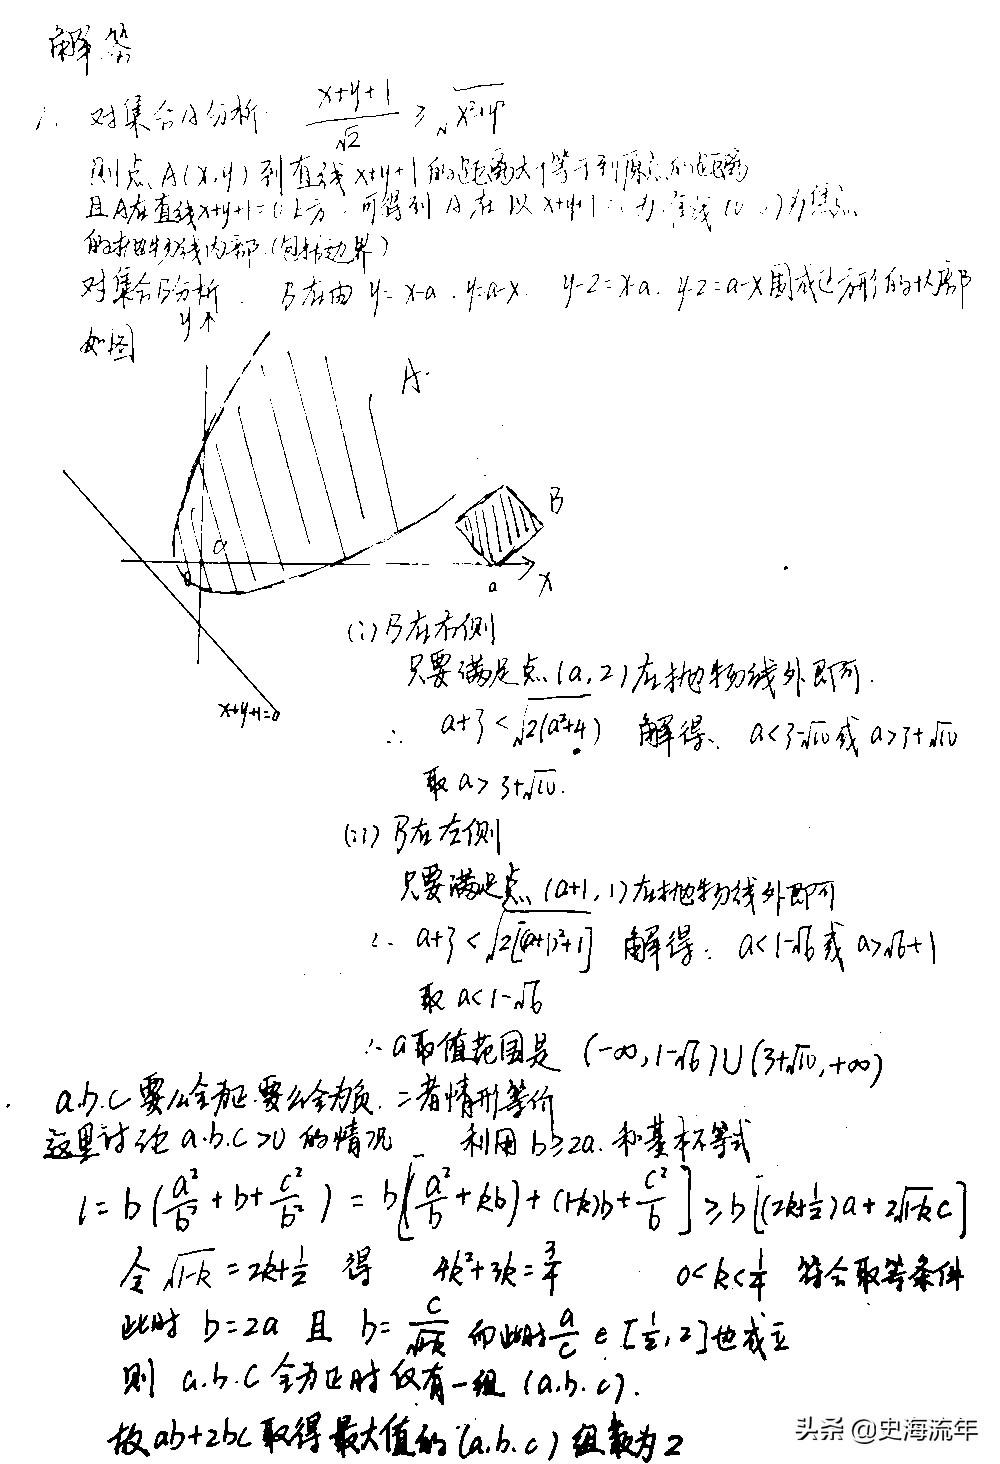 解答
1. 对集合A分析 (x+y+1)/√2 ≥ √(x²+y²)
则点A(x,y)到直线x+y+1的距离大于等于到原点的距离
且A在直线x+y+1=0上方,可得到A在以x+y+1=0为准线(0,0)为焦点
的抛物线内部(包括边界)
对集合B分析. B在由 y=x-a. y=a-x. y-2=x-a. y-2=a-x围成正方形的内部
如图
y
A
B
O
a
x
x+y+1=0
(i) B在右侧
只要满足点(a,2)在抛物线外即可.
∴ a+3<√(2(a²+4)) 解得: a<3-√10或a>3+√10
取a>3+√10.
(ii) B在左侧
只要满足点(a+1,1)在抛物线外即可
∴ a+3<√(2[(a+1)²+1]) 解得: a<1-√6或a>√6+1
取a<1-√6
∴a取值范围是 (-∞,1-√6)∪(3+√10,+∞)
a.b.c要么全为正.要么全为负.二者情形等价
这里讨论a.b.c>0的情况 利用b≥2a.和基本不等式
1=b(a²/b+b+c²/b)=b[(a²/b+kb)+(1-k)b+c²/b]≥b[(2k+1/2)a+2√(1-k)c]
令√(1-k)=2k+1/2 得 4k²+3k=3/4 0<k<1/4 符合取等条件
此时 b=2a 且 b=c/√(1-k) 而此时a/c∈[1/2,2]也成立
则 a.b.c全为正时仅有一组(a.b.c).
故ab+2bc取得最大值的(a.b.c)组数为2
头条 @史海流年